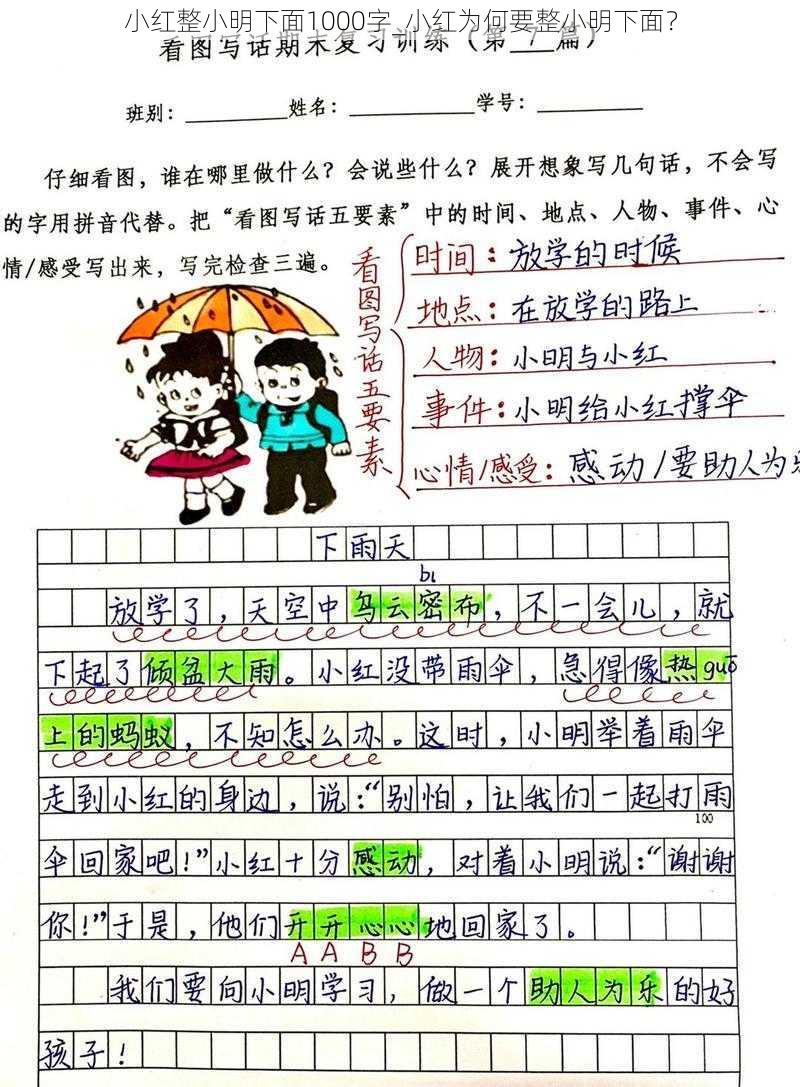 小红整小明下面1000字  小红为何要整小明下面？
看图写话期末复习训练（第 7 篇）
班别：________姓名：__________学号：________
仔细看图，谁在哪里做什么？会说些什么？展开想象写几句话，不会写
的字用拼音代替。把“看图写话五要素”中的时间、地点、人物、事件、心
情/感受写出来，写完检查三遍。
看图写话五要素
时间：放学的时候
地点：在放学的路上
人物：小明与小红
事件：小明给小红撑伞
心情/感受：感动/要助人为乐
下雨天
bì
放学了，天空中乌云密布，不一会儿，就
下起了倾盆大雨。小红没带雨伞，急得像热guō
上的蚂蚁，不知怎么办。这时，小明举着雨伞
走到小红的身边，说：“别怕，让我们一起打雨
100
伞回家吧！”小红十分感动，对着小明说：“谢谢
你！”于是，他们开开心心地回家了。
A A B B
我们要向小明学习，做一个助人为乐的好
孩子！